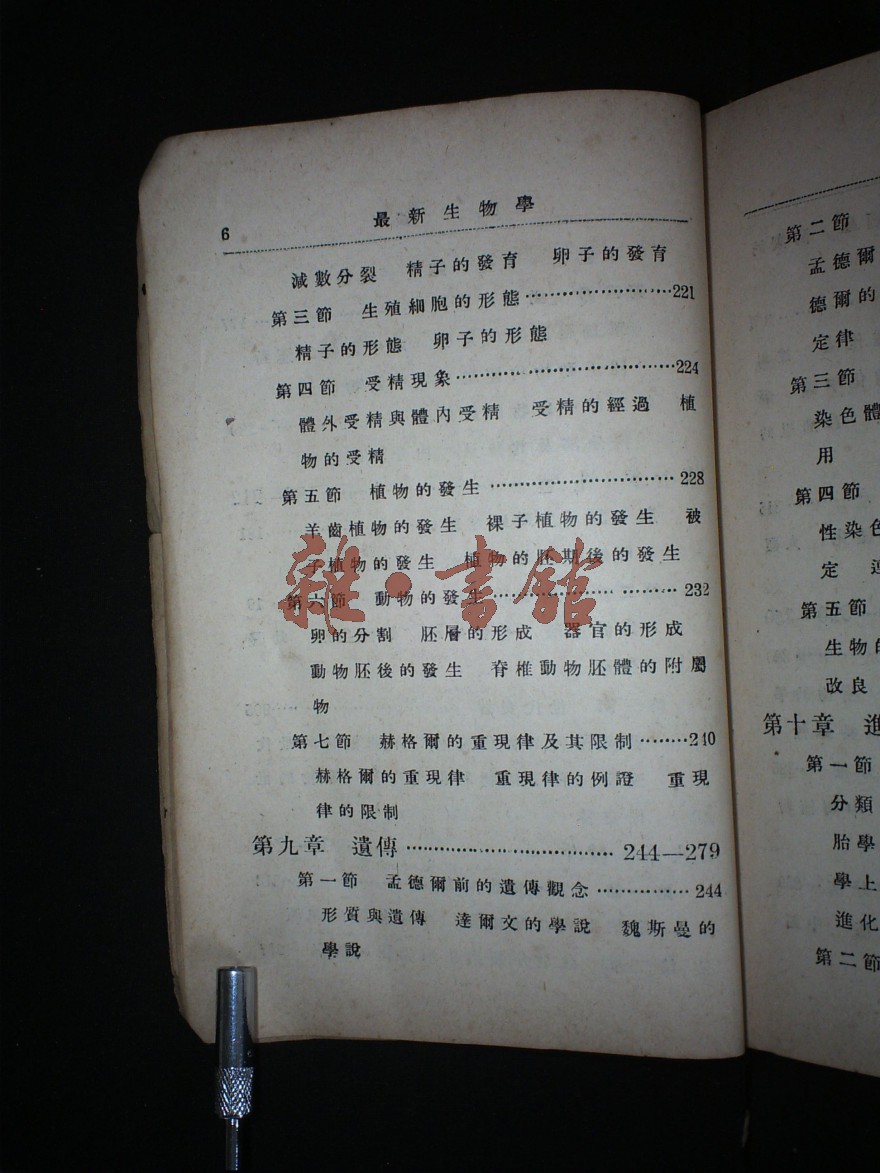 6
最新生物學
減數分裂 精子的發育 卵子的發育
第三節 生殖細胞的形態……………………221
精子的形態 卵子的形態
第四節 受精現象……………………………224
體外受精與體內受精 受精的經過 植
物的受精
第五節 植物的發生…………………………228
羊齒植物的發生 裸子植物的發生 被
子植物的發生 植物的胚期後的發生
第六節 動物的發生…………………………232
卵的分割 胚層的形成 器官的形成
動物胚後的發生 脊椎動物胚體的附屬
物
第七節 赫格爾的重現律及其限制………240
赫格爾的重現律 重現律的例證 重現
律的限制
第九章 遺傳……………………………244—279
第一節 孟德爾前的遺傳觀念……………244
形質與遺傳 達爾文的學說 魏斯曼的
學說
雜·書館
第二節
孟德爾
德爾的
定律
第三節
染色體
用
第四節
性染色
定 連
第五節
生物的
改良
第十章 進
第一節
分類
胎學
學上
進化
第二節